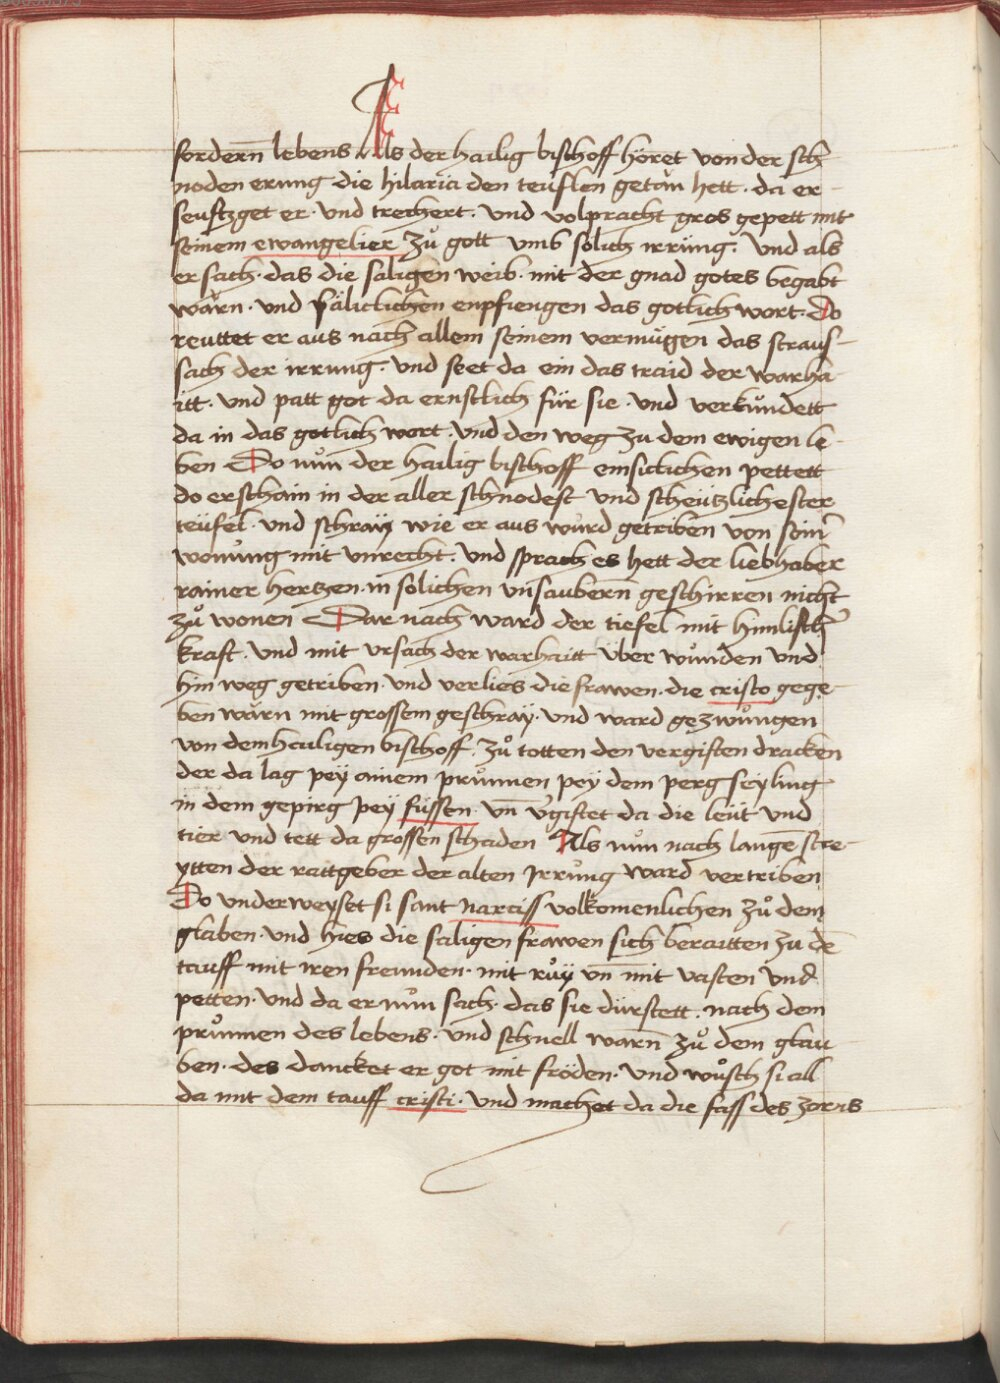 fordern̄ lebens Als der hailig bischoff höret von der sch
noden erung die hilaria den teuflen getăn hett · da er-
seuftzget er · vnd trechert · vnd volpracht gros gepett mit
seinem ewangelier zů gott vmb solich irrŭng · Vnd als
er sach · das die saligen weib · mit der gnad gotes begabt
wărn · vnd săliclichen enpfiengen das gotlich wort · do
reuttet er aus nach allem seinem vermŭgen das straus-
sach der irrung · vnd seet da ein das traid der warha-
itt · vnd patt got da ernstlich für sie · vnd verkŭndett
da in das gotlich wort · vnd den weg zu dem ewigen le-
ben Do nŭn der hailig bischoff einsiclichen pettett
do erschain in der aller schnodest vnd scheützlichester
teüfel · vnd schraÿ wie er aus wŭrd getriben von sein̄
wonŭng mit vnrecht · vnd sprach es hett der liebhaber
rainer hertzen · in solichen vnsaubern̄ geschirren nicht
zů wonen Dar nach ward der tiefel mit himlisch̄
kraft · vnd mit vrsach der warhaitt über wŭnden vnd
hin weg getriben · vnd verlies die frawen · die cristo gege-
ben wărn mit grossem geschraÿ · vnd ward gezwŭngen
von dem heiligen bischoff · zů totten den vergiften dracken
der da lag peÿ ainem prŭnnen peÿ dem perg seÿling
in dem gepirg peÿ füssen · vn̄ v̄giftet da die leüt vnd
tier vnd tett da grossen schaden Als nŭn nach langē stre-
ytten der rattgeber der alten Jrrŭng ward vertriben
Do vnderweyset si sant narciss volkomenlichen zů dem
glaben · vnd hies die saligen frawen sich beraitten zu dē
tauff mit iren freunden · mit rŭÿ vn̄ mit vasten vnd
petten · vnd da er nŭn sach · das sie dürstett · nach dem
prŭnnen des lebens · vnd schnell warn̄ zů dem glau
ben · des dancket er got mit fröden · vnd wŭsch si all
da mit dem tauff cristi · vnd machet da die fass des zorns